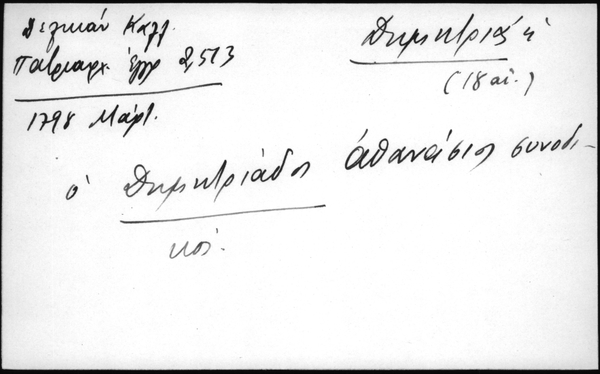 Δελικάν Καλλ.
Πατριαρχ. ἔγγρ 2,513
1798 Μάρτ.
Δημητριάς ἡ
(18 αἰ.)
ὁ Δημητριάδος Ἀθανάσιος συνοδι-
κός.